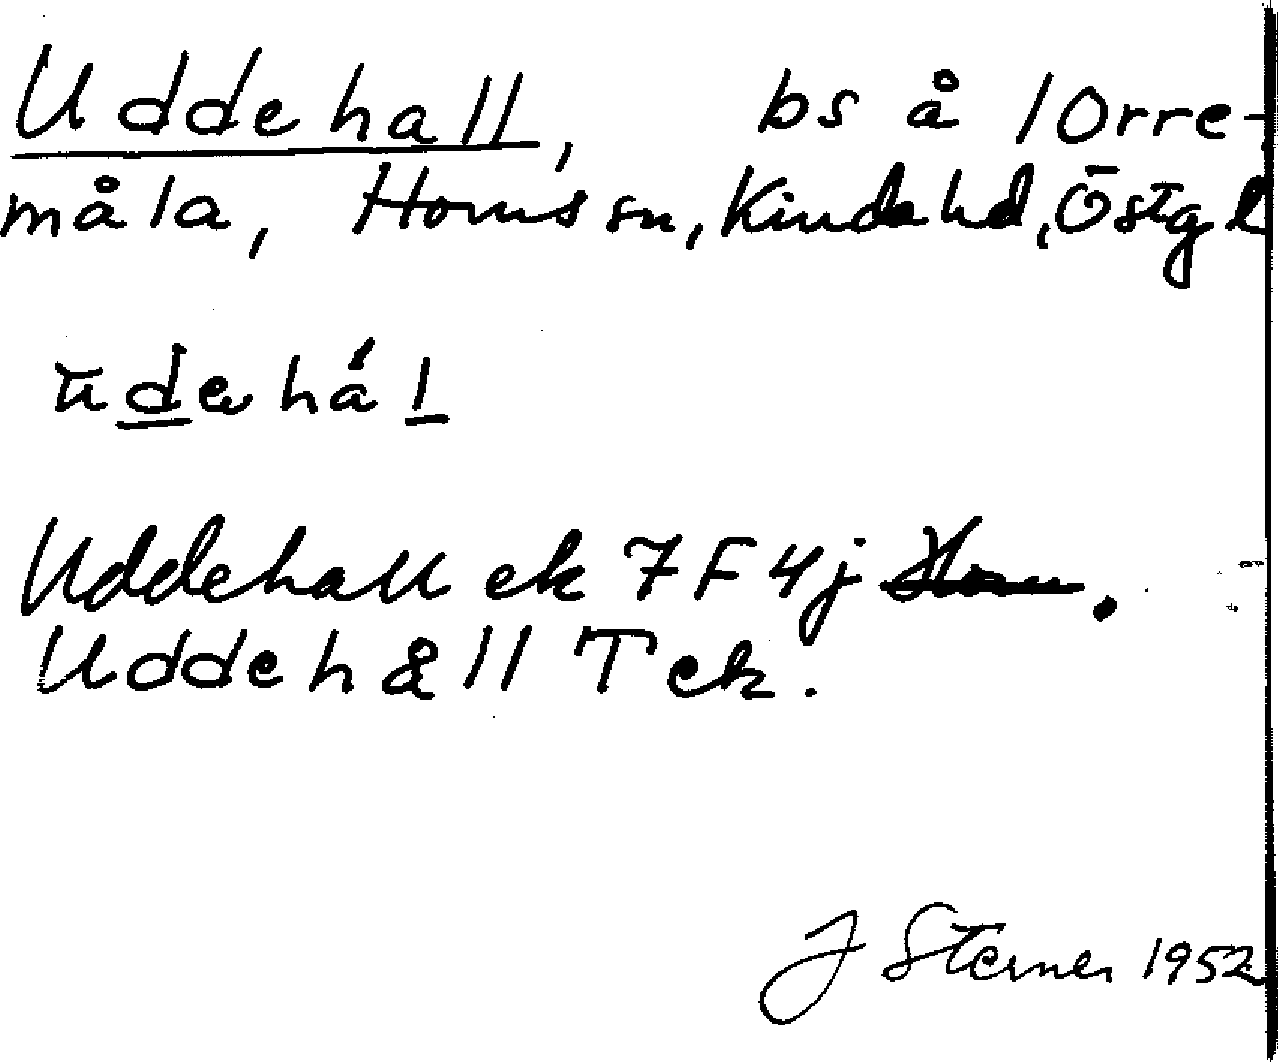 Uddehall, bs å 1 Orre-
måla, Horns sn, Kinda hd, Östg l
Uddehall ek 7F4j
Uddehåll T ek.
J Sterner 1952